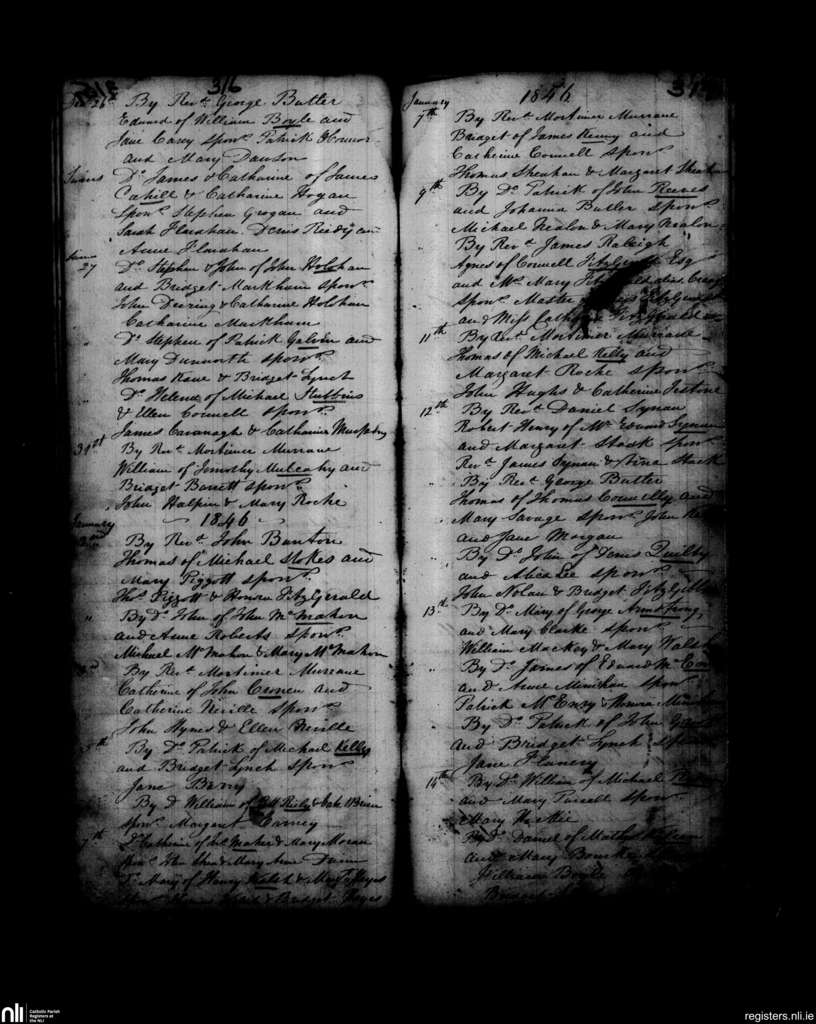 316
Dec 26th By Revd. George Butler
Edward of William Boyle and
Jane Casey sponrs. Patrick OConnor
and Mary Dawson
Twins Do. James & Catharine of James
Cahill & Catharine Hogan
sponrs. Stephen Grogan and
Sarah Flanahan. Denis Reidy an
Anne Flanahan
27 Do. Stephen & John of John Holohan
and Bridget Markham sponrs.
John Deering & Catharine Holohan
Catharine Markham
" Do. Stephen of Patrick Galvin and
Mary Dunworth sponrs.
Thomas Kane & Bridget Lynch
" Do. Helena of Michael Stubbins
& Ellen Connell sponrs.
James Cavanagh & Catharine
31st By Revd. Mortimer Murrane
William of Timothy Mulcahy and
Bridget Barrett sponrs.
John Halpin & Mary Roche
January 1846
2nd By Revd. John Bunton
Thomas of Michael Stokes and
Mary Piggott sponrs.
Thos. Piggott & Honora FitzGerald
" By Do. John of John McMahon
and Anne Roberts sponrs.
Michael McMahon & Mary McMahon
By Revd. Mortimer Murrane
Catherine of John and
Catherine Neville sponrs.
John Hynes & Ellen Neville
5th By Do. Patrick of Michael Kelly
and Bridget Lynch sponrs.
Jane Barry
By Do William of Patt Reily & Cate OBrien
sponrs. Margaret Carney
7th Do. Catherine of Maher & Mary Moran
sponrs. John & Mary Anne Dunn
Do. Mary of Henry Walsh & Mary Hayes
& Bridget Hayes
January 1846
7th By Revd. Mortimer Murrane
Bridget of James Kenny and
Catherine Connell sponrs.
Thomas Sheahan & Margaret Sheahan
9th By Do. Patrick of John Reeves
and Johanna Butler sponrs.
Michael Nealon & Mary Nealon
By Revd. James Raleigh
Agnes of Connell FitzGerald Esq
and Mrs. Mary alias
sponrs. Master FitzGerald
and Miss FitzGerald
11th By Revd. Mortimer Murrane
Thomas of Michael Kelly and
Margaret Roche sponrs.
John Hughs & Catherine
12th By Revd. Daniel Synan
Robert Henry of Mr. Edward Synan
and Margaret Stack sponrs.
Revd. James Synan & Stack
By Revd. George Butler
Thomas of Thomas Connelly and
Mary Savage sponrs. John
and Jane Morgan
By Do. John of Denis Quilty
and Alice Lee sponrs.
John Nolan & Bridget
13th By Do. Mary of George Armstrong
and Mary Clarke sponrs.
William Mackey & Mary Walsh
" By Do. James of Edward Mc
and Anne Minihan sponrs.
Patrick & Honora
By Do. Patrick of John
and Bridget Lynch
Jane Flanery
14th By Do. William of Michael
and Mary Purcell sponrs.
Mary
By Do. Daniel of
and Mary Bourke
William Boyle
Bridget
nli
Catholic Parish
Registers at
the NLI
registers.nli.ie